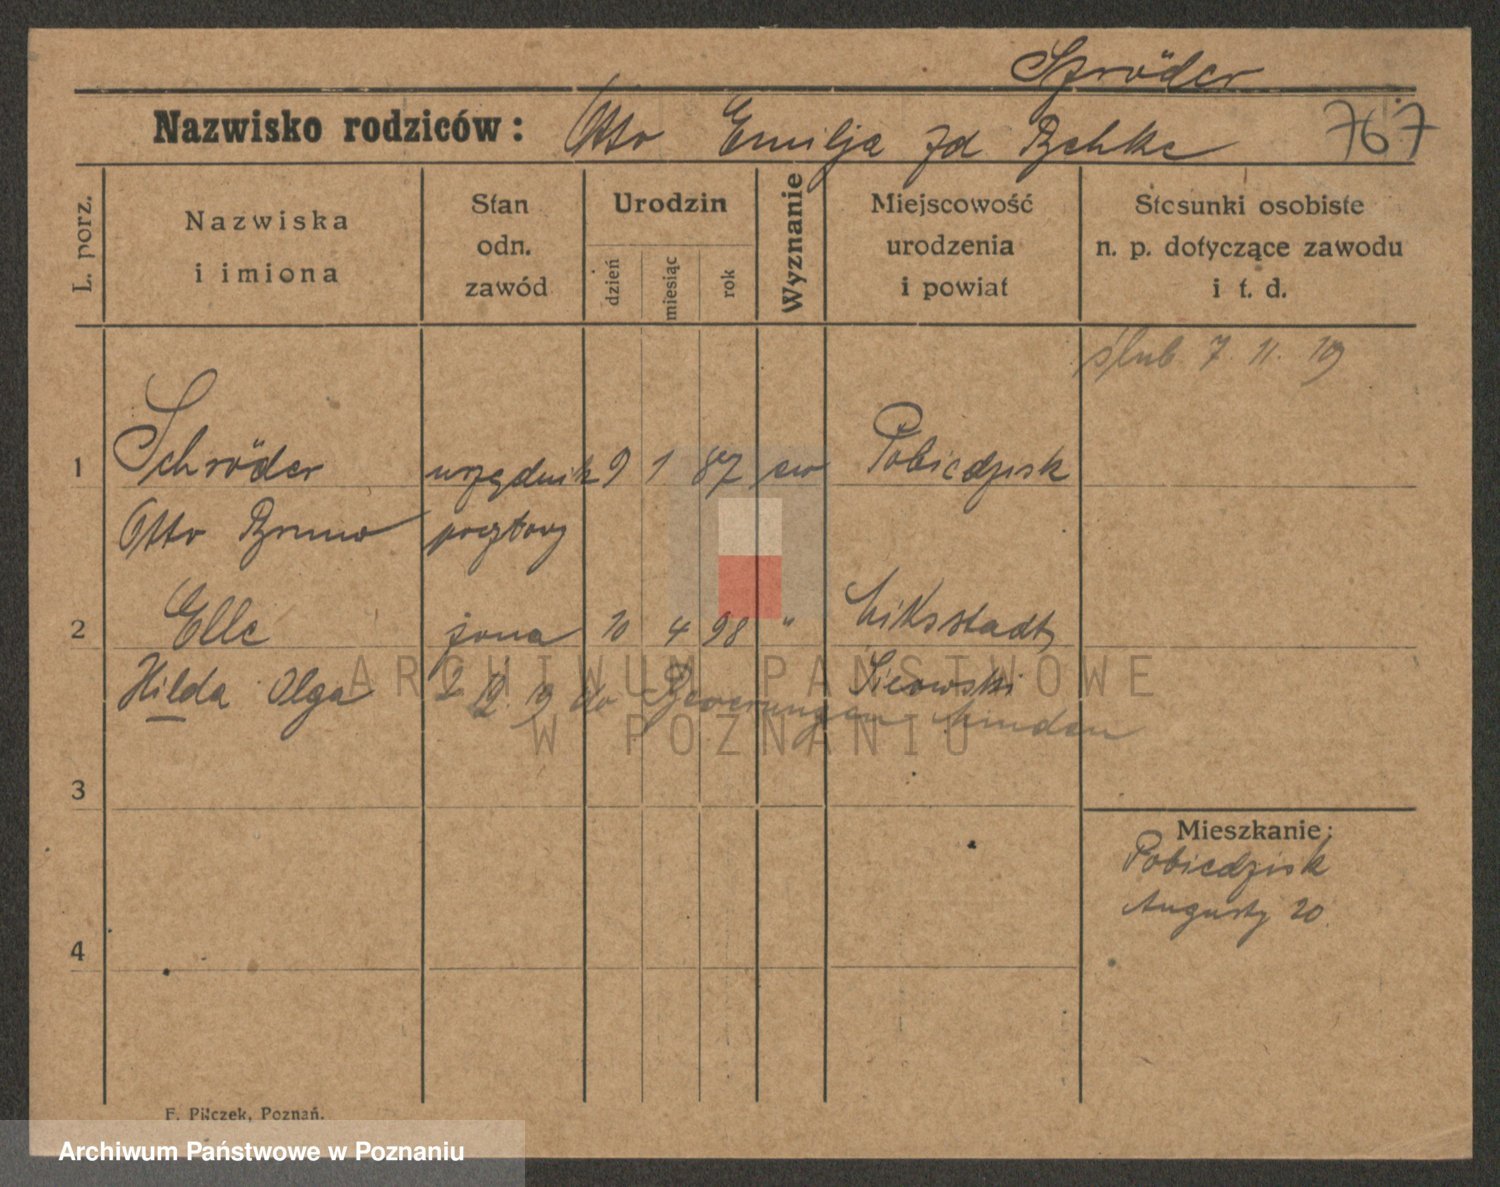 Szröder
Nazwisko rodziców: Otto Emilja zd Behke 767
L. porz.
Nazwiska
i imiona
Stan
odn.
zawód
Urodzin
dzień
miesiąc
rok
Wyznanie
Miejscowość
urodzenia
i powiat
Stosunki osobiste
n. p. dotyczące zawodu
i t. d.
ślub 7 11. 19
1 Schröder urzędnik 9 1 87 ew Pobiedzisk
Otto Bruno pocztowy
2 Elle żona 10 4 98 "
Hilda Olga 2 12. 19 do Minden
ARCHIWUM PAŃSTWOWE
W POZNANIU
3
Mieszkanie:
Pobiedzisk
Augusty 20
4
F. Pilczek, Poznań.
Archiwum Państwowe w Poznaniu